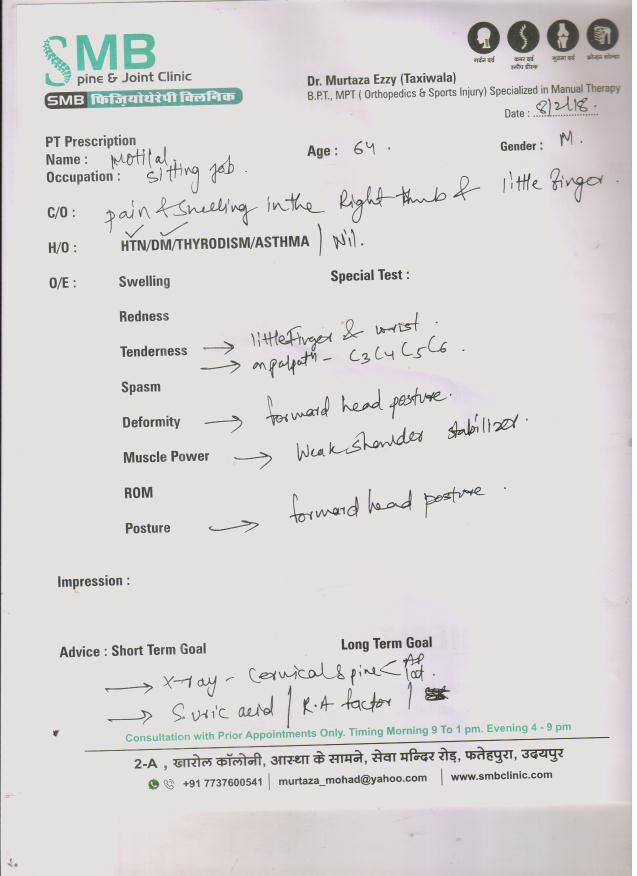 SMB
pine & Joint Clinic
SMB फिजियोथेरेपी क्लिनिक
गर्दन दर्द
कमर दर्द
स्लीप डीस्क
घुटना दर्द
फ्रोजन शोल्डर
Dr. Murtaza Ezzy (Taxiwala)
B.P.T., MPT ( Orthopedics & Sports Injury) Specialized in Manual Therapy
Date : 8/2/18.
PT Prescription
Name : Motilal.
Age : 64.
Gender : M.
Occupation : Sitting job.
C/O : pain & Swelling in the Right thumb & little finger.
H/O : HTN/DM/THYRODISM/ASTHMA / Nil.
O/E : Swelling
Special Test :
Redness
Tenderness → little Finger & wrist.
→ on palpatn – C3 C4 C5 C6.
Spasm
Deformity → forward head posture.
Muscle Power → Weak shoulder stabilizer.
ROM
Posture → forward head posture.
Impression :
Advice : Short Term Goal
Long Term Goal
→ X-ray – Cervical spine < AP
→ S. uric acid / R.A factor /
Consultation with Prior Appointments Only. Timing Morning 9 To 1 pm. Evening 4 - 9 pm
2-A , खारोल कॉलोनी, आस्था के सामने, सेवा मन्दिर रोड़, फतेहपुरा, उदयपुर
+91 7737600541 | murtaza_mohad@yahoo.com | www.smbclinic.com